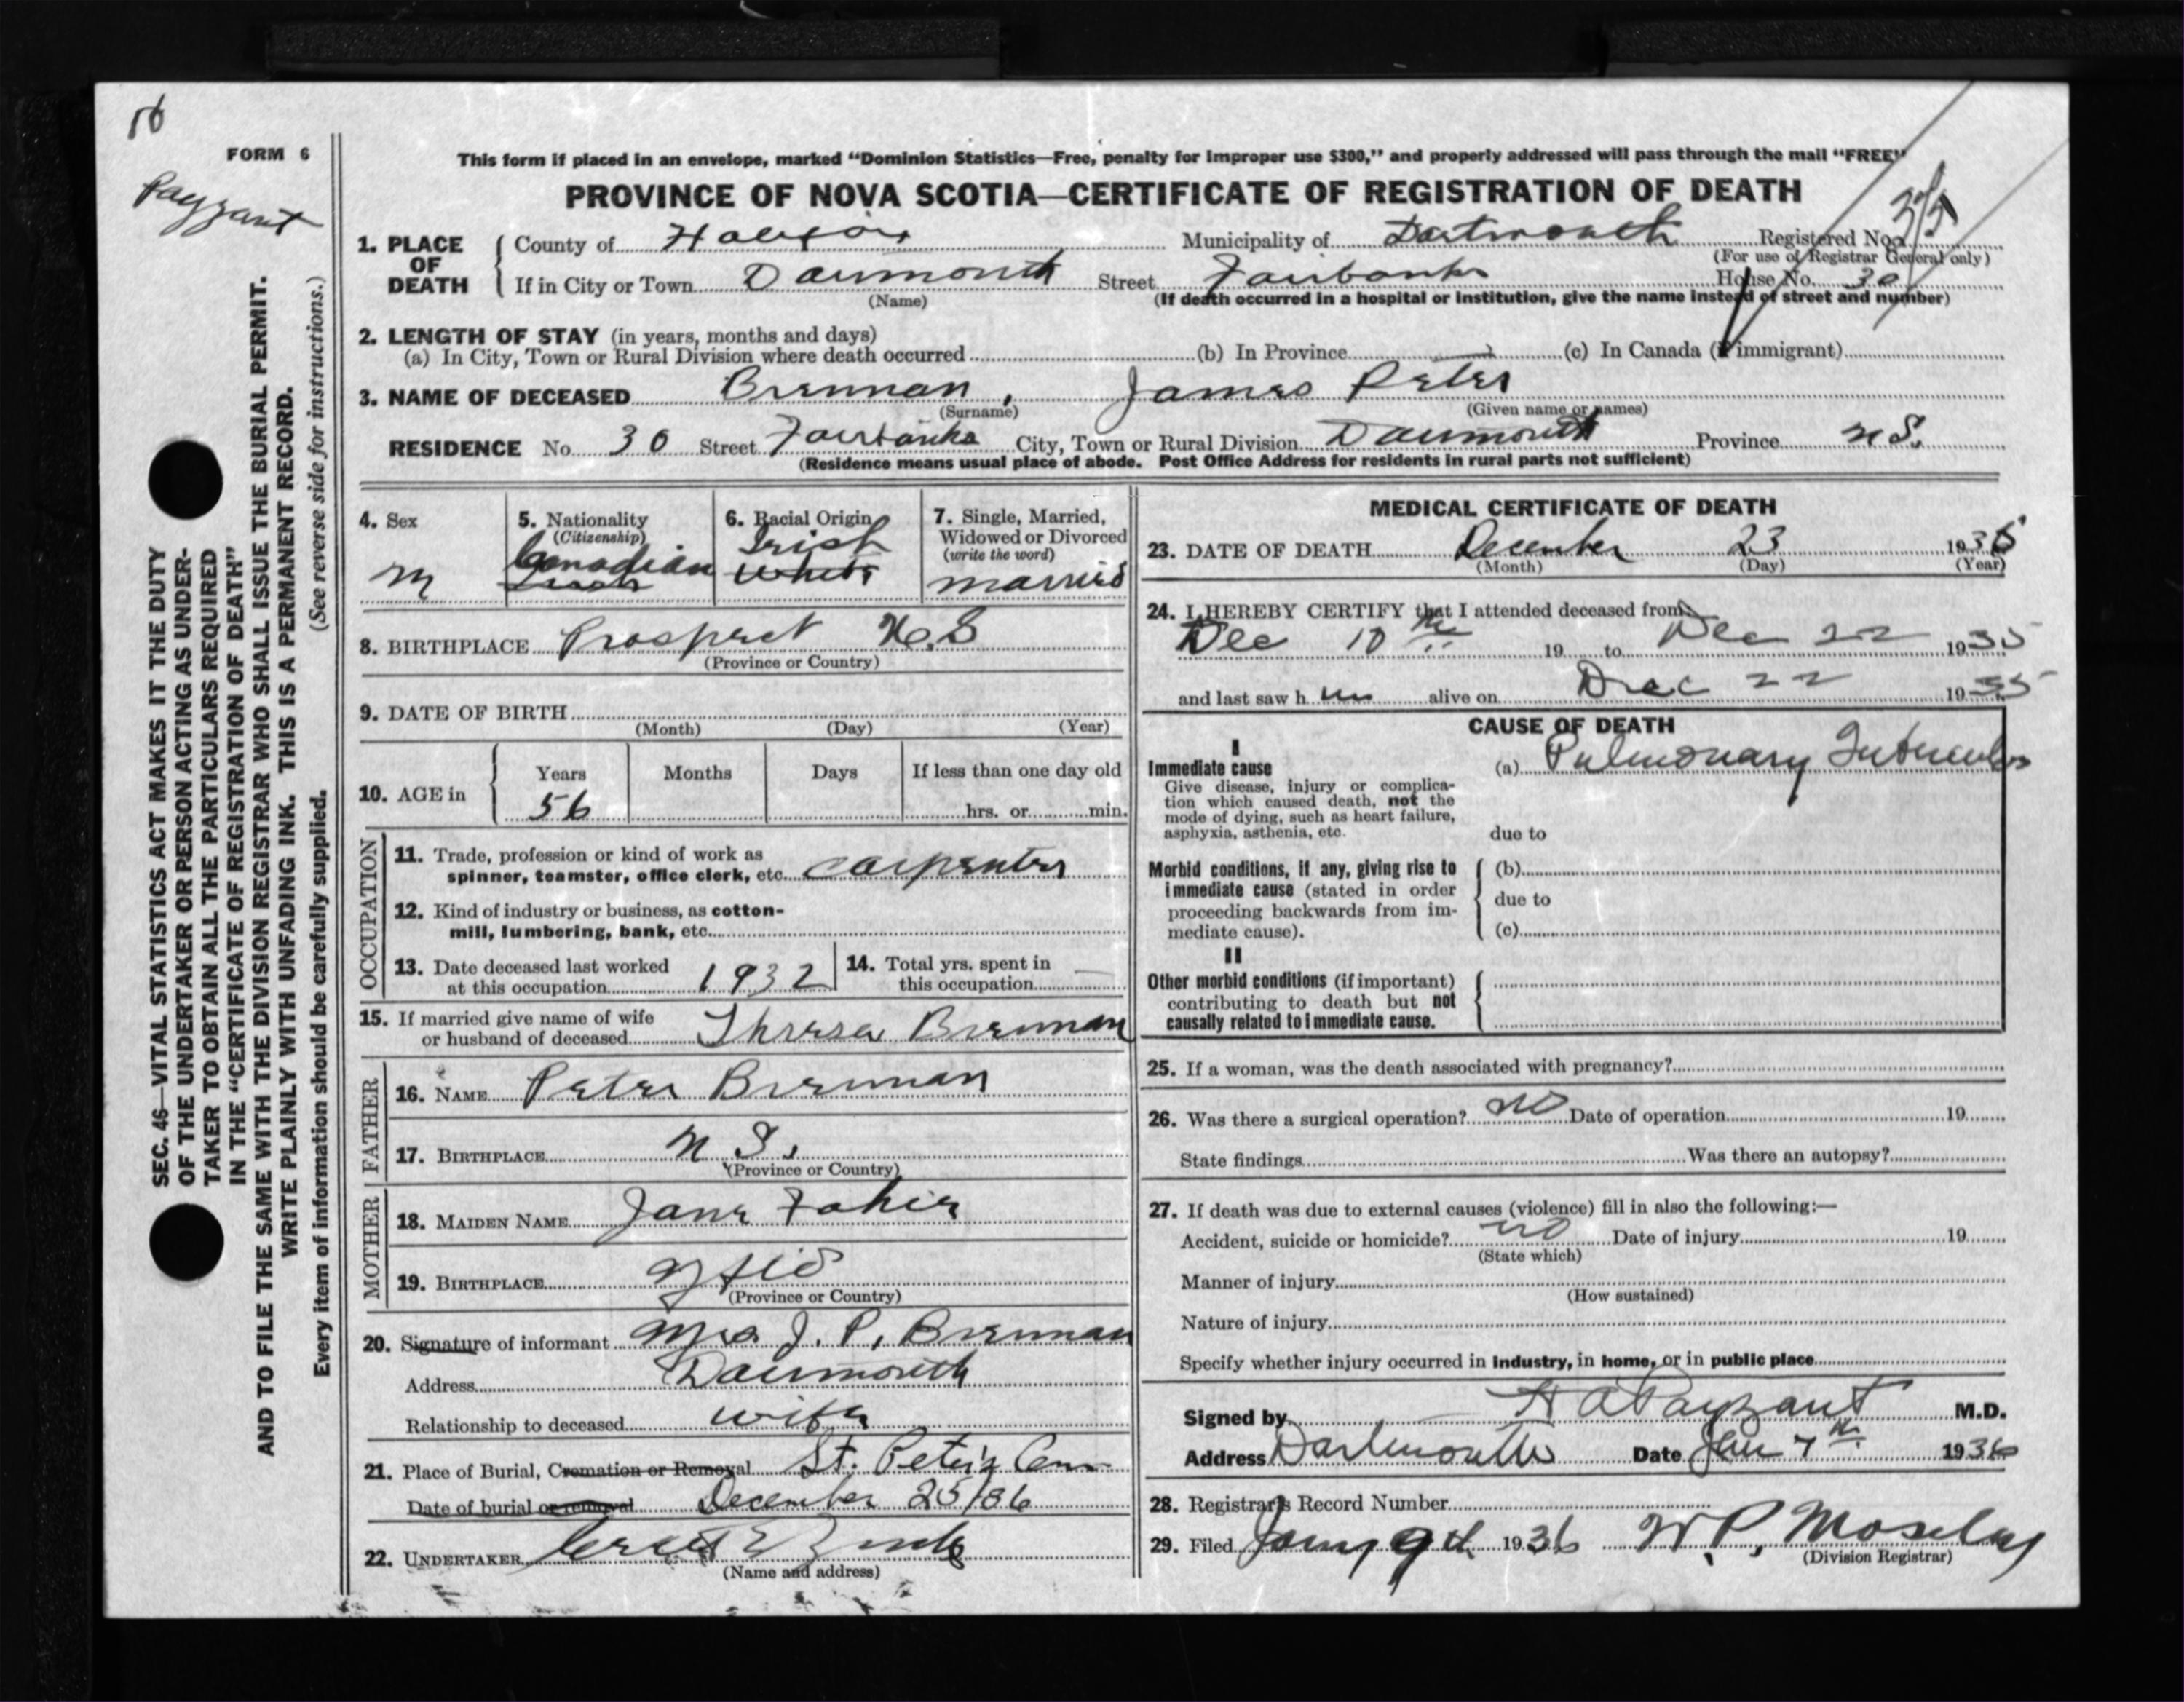 56
FORM 6
Payzant
This form if placed in an envelope, marked “Dominion Statistics—Free, penalty for improper use $300,” and properly addressed will pass through the mail “FREE”
PROVINCE OF NOVA SCOTIA—CERTIFICATE OF REGISTRATION OF DEATH
1. PLACE OF DEATH County of Halifax Municipality of Dartmouth Registered No.
(For use of Registrar General only)
If in City or Town Dartmouth Street Fairbanks House No. 30
(Name) (If death occurred in a hospital or institution, give the name instead of street and number)
2. LENGTH OF STAY (in years, months and days)
(a) In City, Town or Rural Division where death occurred (b) In Province (c) In Canada (if immigrant)
3. NAME OF DECEASED Brennan, James Peter
(Surname) (Given name or names)
RESIDENCE No. 30 Street Fairbanks City, Town or Rural Division Dartmouth Province N S.
(Residence means usual place of abode. Post Office Address for residents in rural parts not sufficient)
4. Sex
M
5. Nationality
(Citizenship)
Canadian
Irish
6. Racial Origin
Irish
White
7. Single, Married,
Widowed or Divorced
(write the word)
married
8. BIRTHPLACE Prospect N.S
(Province or Country)
9. DATE OF BIRTH
(Month) (Day) (Year)
10. AGE in
Years Months Days If less than one day old
56 hrs. or min.
OCCUPATION
11. Trade, profession or kind of work as
spinner, teamster, office clerk, etc. carpenter
12. Kind of industry or business, as cotton-
mill, lumbering, bank, etc.
13. Date deceased last worked
at this occupation 1932
14. Total yrs. spent in
this occupation —
15. If married give name of wife
or husband of deceased Theresa Brennan
FATHER
16. NAME Peter Brennan
17. BIRTHPLACE N S.
(Province or Country)
MOTHER
18. MAIDEN NAME Jane
19. BIRTHPLACE
(Province or Country)
20. Signature of informant Mrs. J. P. Brennan
Address Dartmouth
Relationship to deceased wife
21. Place of Burial, Cremation or Removal St. Peter's Cem
Date of burial or removal December 25/
22. UNDERTAKER
(Name and address)
MEDICAL CERTIFICATE OF DEATH
23. DATE OF DEATH December 23 1935
(Month) (Day) (Year)
24. I HEREBY CERTIFY that I attended deceased from
Dec 10 th 19 to Dec 22 1935
and last saw h im alive on Dec 22 1935
CAUSE OF DEATH
I
Immediate cause
Give disease, injury or complica-
tion which caused death, not the
mode of dying, such as heart failure,
asphyxia, asthenia, etc.
(a) Pulmonary
due to
Morbid conditions, if any, giving rise to
immediate cause (stated in order
proceeding backwards from im-
mediate cause).
(b)
due to
(c)
II
Other morbid conditions (if important)
contributing to death but not
causally related to immediate cause.
25. If a woman, was the death associated with pregnancy?
26. Was there a surgical operation? no Date of operation 19
State findings Was there an autopsy?
27. If death was due to external causes (violence) fill in also the following:—
Accident, suicide or homicide? no Date of injury 19
(State which)
Manner of injury
(How sustained)
Nature of injury
Specify whether injury occurred in industry, in home, or in public place
Signed by H A Payzant M.D.
Address Dartmouth Date Jan 7 th 1936
28. Registrar's Record Number
29. Filed Jany 9th 1936 W. P. Moseley
(Division Registrar)
SEC. 46—VITAL STATISTICS ACT MAKES IT THE DUTY
OF THE UNDERTAKER OR PERSON ACTING AS UNDER-
TAKER TO OBTAIN ALL THE PARTICULARS REQUIRED
IN THE “CERTIFICATE OF REGISTRATION OF DEATH”
AND TO FILE THE SAME WITH THE DIVISION REGISTRAR WHO SHALL ISSUE THE BURIAL PERMIT.
WRITE PLAINLY WITH UNFADING INK. THIS IS A PERMANENT RECORD.
Every item of information should be carefully supplied. (See reverse side for instructions.)